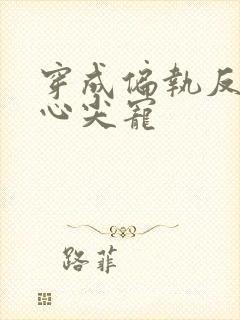 穿成偏執反
心尖寵
路菲